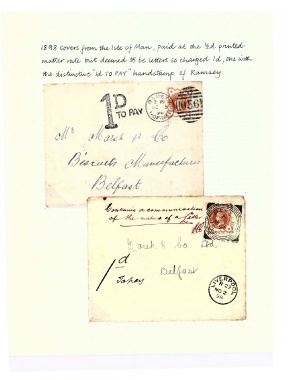 1898 covers from the Isle of Man, paid at the ½d printed
matter rate but deemed to be letters so charged 1d, one with
the distinctive "1d TO PAY" handstamp of Ramsey.
1D
TO PAY
Mrs Marsh & Co
Biscuits Manufacturers
Belfast
Contains a communication
of the nature of a letter.
Marsh & Co Ltd
Belfast
1d
To pay
LIVERPOOL
NO 2
98